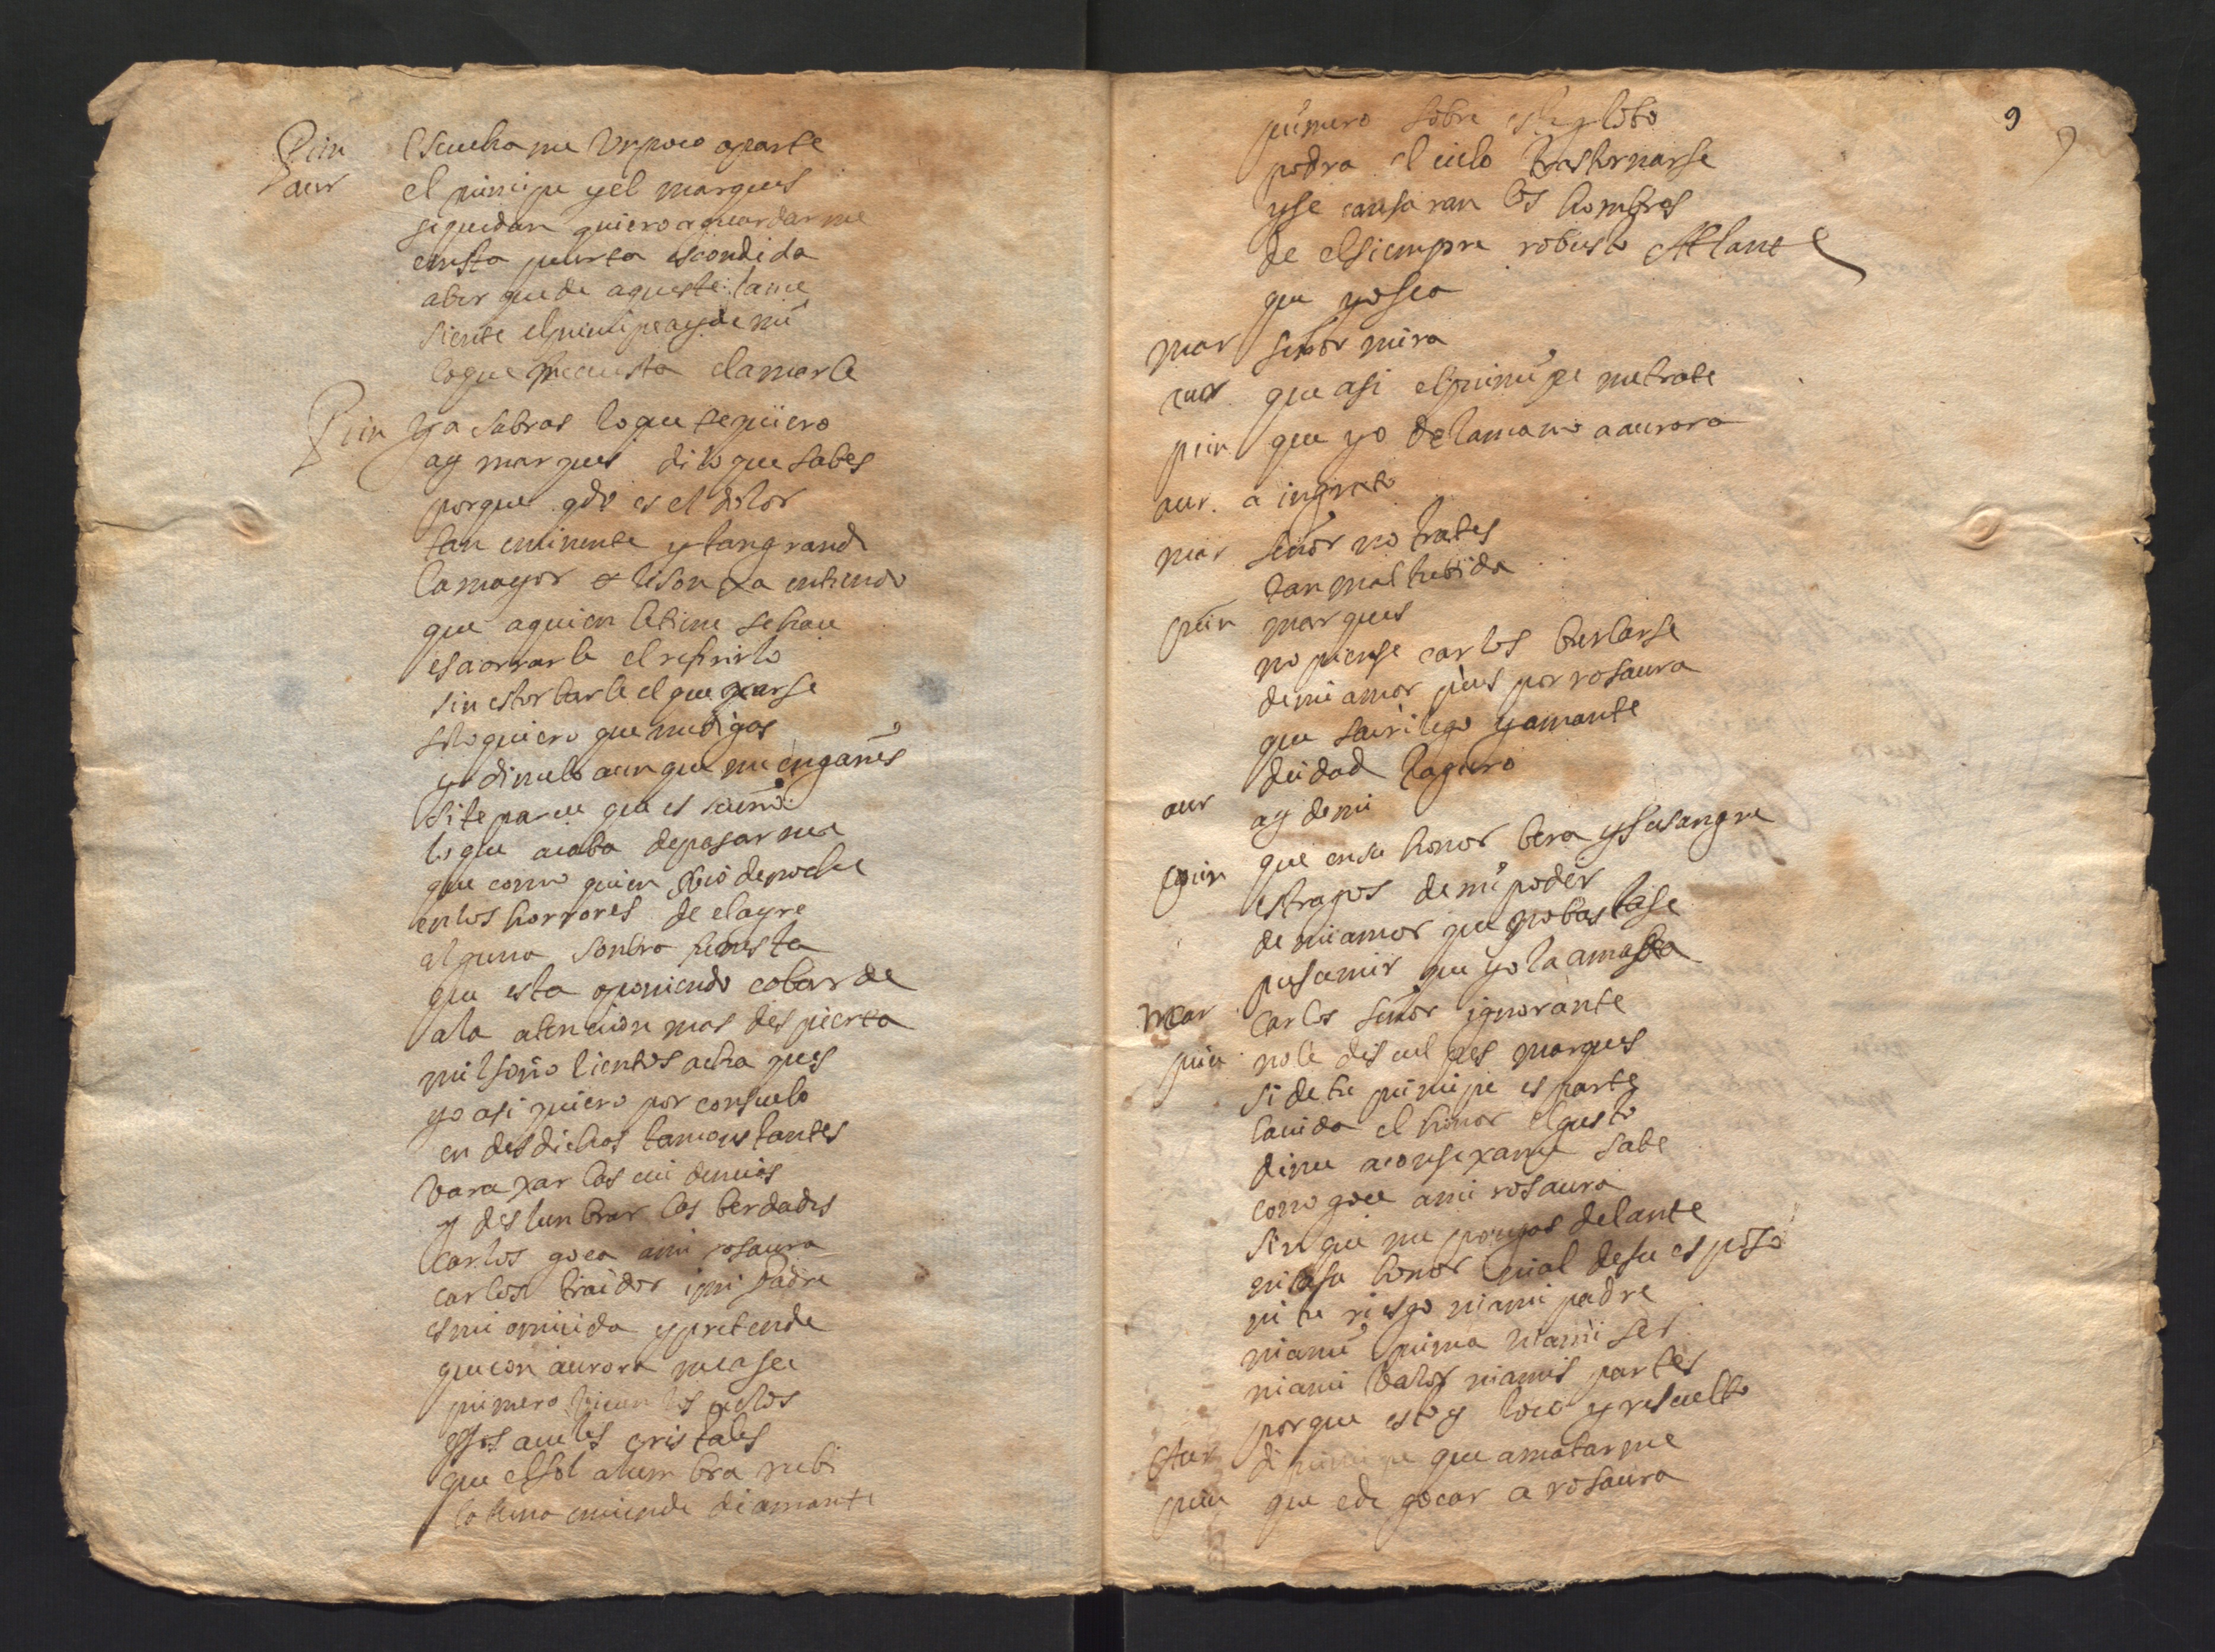 Prin escuchame Vn poco aparte
aur el principe y el marques
se quedan quiero aguardarme
en esta puerta escondida
a ber que de aqueste lance
siente el principe ay de mi
lo que me cuesta el amarle
Prin ya sabras lo que te quiero
ay marques di lo que sabes
porque qdo es el dolor
tan eminente y tan grande
la mayor lisonxa entiendo
que a quien le tiene se hace
es aorrarle el referirlo
sin estorbarle el quexarse
solo quiero que me digas
y dimelo aunque me engañes
si te parece que es sueño
lo que acaba de pasarme
que como quien bio de noche
en los horrores de el ayre
alguna sonbra funesta
que esta oponiendo cobarde
a la atencion mas despierta
mil soñolientos achaques
yo asi quiero por consuelo
en desdichas tan constantes
baraxar las euidencias
y deslunbrar las berdades
carlos goca a mi rosaura
carlos traidor i mi padre
es mi omicida y pretende
que con aurora me case
primero
esos acules cristales
que el sol alumbra rubi
la luna enciende diamante
9
9
primero sobre este globo
podra el cielo trastornarse
y se cansaran los hombros
de el siempre robusto Atlante
que yo sea
mar señor mira
aur que asi el principe me trate
prin que yo de la mano a aurora
aur. a ingrato
mar señor no trates
tan mal tu bida
prin marques
no piense carlos burlarse
de mi amor pues por rosaura
que sacrilego y amante
deidad
aur ay de mi
prin que en su honor bera y su sangre
estragos de mi poder
de mi amor que no bastase
presumir que yo la amaba
mar Carlos señor ignorante
prin no le disculpes marques
si de tu principe es parte
la uida el honor el gusto
dime aconsexame sabe
como goce a mi rosaura
sin que me pongas delante
ni a su honor ni al de su esposo
ni tu riesgo ni a mi padre
ni a mi prima ni a mi ser
ni a mi balor ni a mis partes
porque estoy loco y resuelto
Aur di principe que a matarme
prin que e de gocar a rosaura